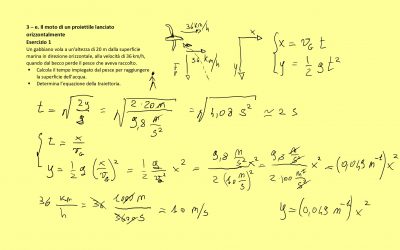 3 – e. Il moto di un proiettile lanciato
orizzontalmente
Esercizio 1
Un gabbiano vola a un'altezza di 20 m dalla superficie
marina in direzione orizzontale, alla velocità di 36 km/h,
quando dal becco perde il pesce che aveva raccolto.
• Calcola il tempo impiegato dal pesce per raggiungere
la superficie dell'acqua.
• Determina l'equazione della traiettoria.
36 km/h
36 km/h
x
y
x = v₀ t
y = 1/2 g t²
t = √(2y/g) = √(2 · 20 m / 9,8 m/s²) = √(4,08 s²) ≃ 2 s
t = x/v₀
y = 1/2 g (x/v₀)² = 1/2 g/v₀² x² = 9,8 m/s² / 2 (10 m/s)² x² = 9,8 m/s² / 2 · 100 m²/s² x² = (0,049 m⁻¹) x²
36 km/h = 36 1000 m / 3600 s = 10 m/s
y = (0,049 m⁻¹) x²